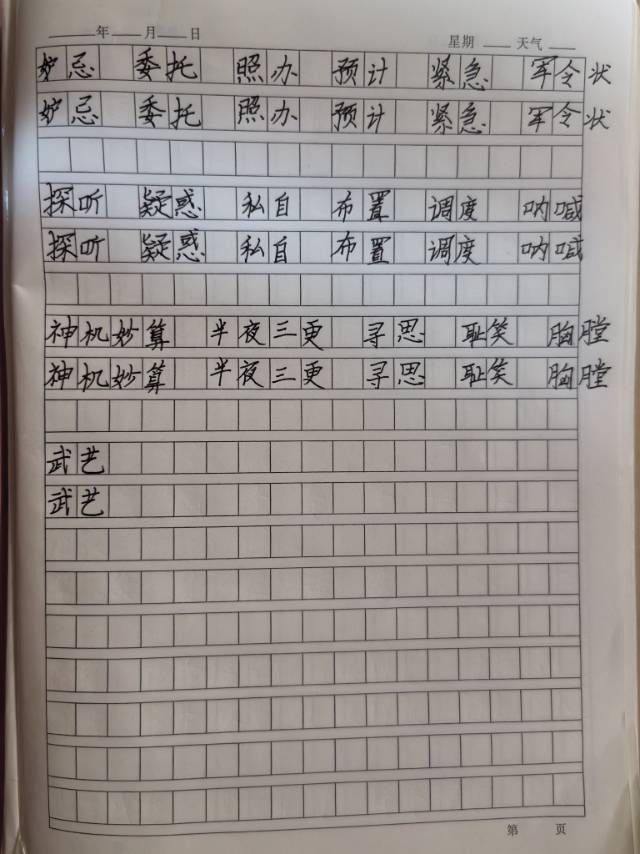 年 月 日 星期 天气
妒忌 委托 照办 预计 紧急 军令状
妒忌 委托 照办 预计 紧急 军令状
探听 疑惑 私自 布置 调度 呐喊
探听 疑惑 私自 布置 调度 呐喊
神机妙算 半夜三更 寻思 耻笑 胸膛
神机妙算 半夜三更 寻思 耻笑 胸膛
武艺
武艺
第 页